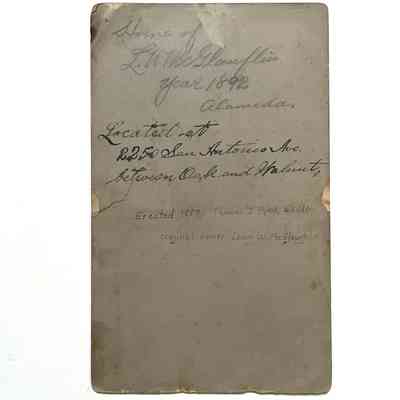 Home of
L. W. McGlauflin
Year 1892
Alameda.
Located at
2250 San Antonio Ave.
between Oak and Walnut,
Erected Thomas
original owner Lewis W. McGlauflin